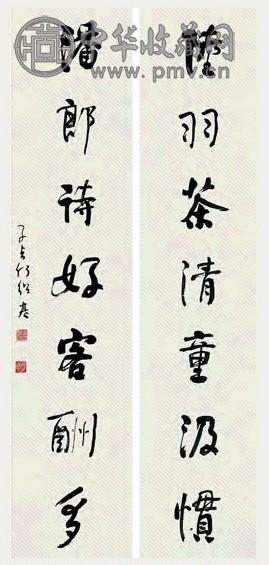 中华收藏网
www.pmv.cn
陸羽茶清童汲慣
潘郎詩好客酬多
子貞何紹基